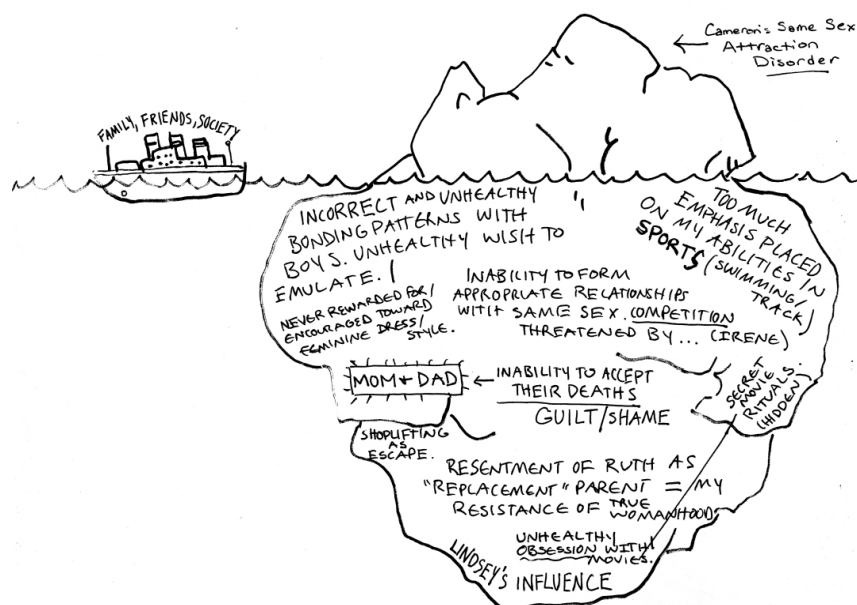 Cameron's Same Sex
Attraction
Disorder
FAMILY, FRIENDS, SOCIETY
INCORRECT AND UNHEALTHY
BONDING PATTERNS WITH
BOYS. UNHEALTHY WISH TO
EMULATE.
TOO MUCH
EMPHASIS PLACED
ON MY ABILITIES IN
SPORTS (SWIMMING/
TRACK)
NEVER REWARDED FOR/
ENCOURAGED TOWARD
FEMININE DRESS/
STYLE.
INABILITY TO FORM
APPROPRIATE RELATIONSHIPS
WITH SAME SEX. COMPETITION
THREATENED BY... (IRENE)
MOM + DAD
INABILITY TO ACCEPT
THEIR DEATHS
GUILT/SHAME
SECRET
MOVIE
RITUALS.
(HIDDEN)
SHOPLIFTING
AS
ESCAPE.
RESENTMENT OF RUTH AS
"REPLACEMENT" PARENT = MY
RESISTANCE OF TRUE
WOMANHOOD
UNHEALTHY
OBSESSION WITH
MOVIES.
LINDSEY'S INFLUENCE